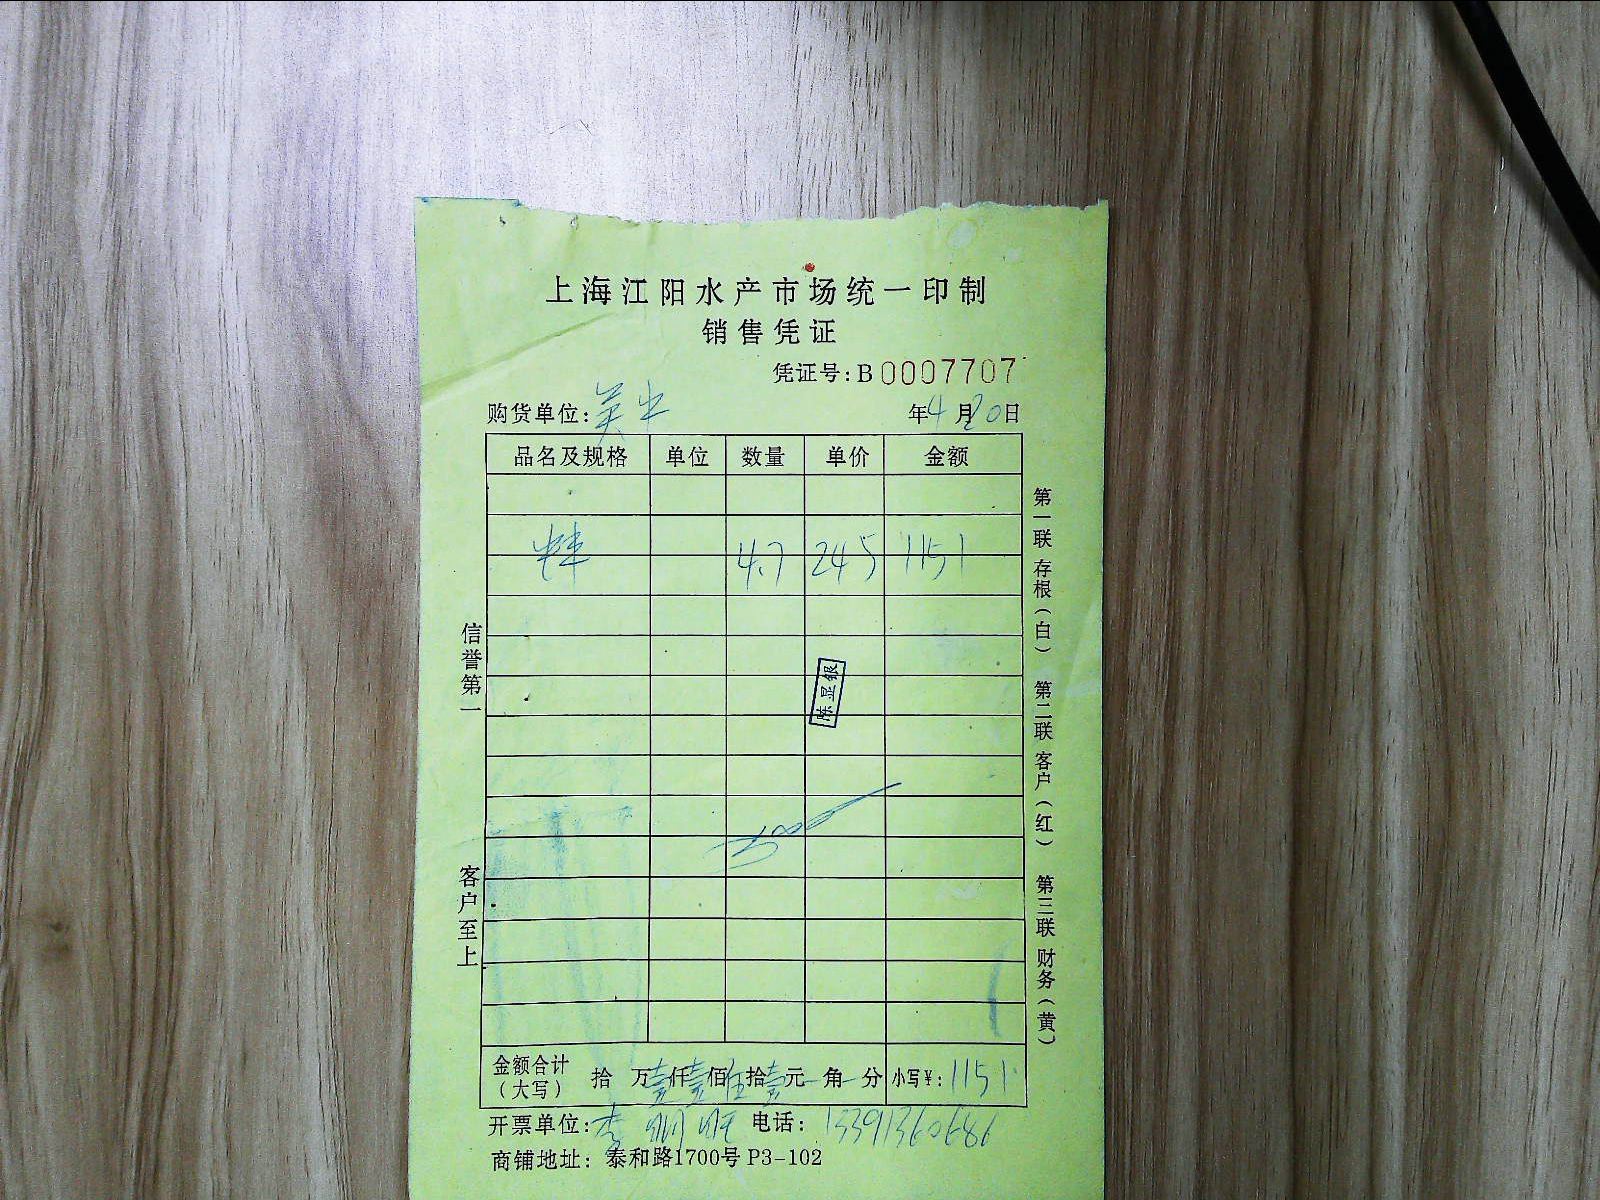 上海江阳水产市场统一印制
销售凭证
凭证号:B0007707
购货单位: 年4月20日
品名及规格 单位 数量 单价 金额
4.7 245 1151
陈显银
信誉第一
客户至上
第一联 存根(白) 第二联 客户(红) 第三联 财务(黄)
金额合计(大写) 拾 万壹仟壹佰伍拾壹元 角 分 小写¥:1151
开票单位:李 电话:13391360686
商铺地址:泰和路1700号 P3-102